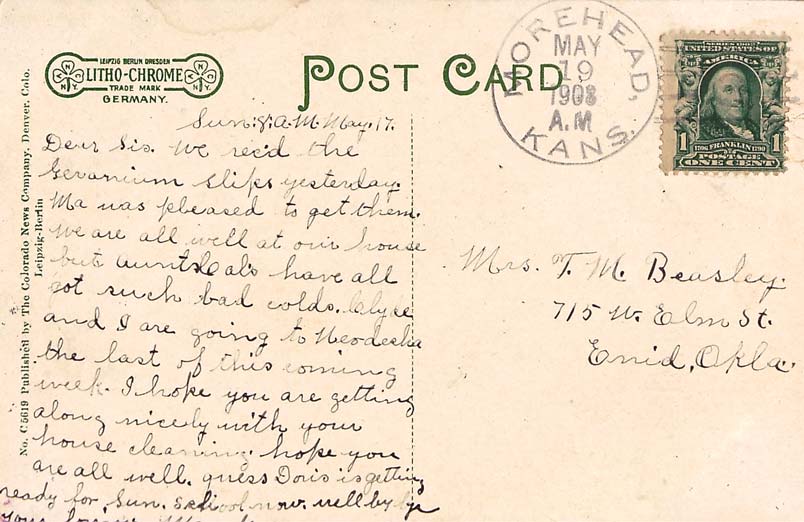 LEIPZIG BERLIN DRESDEN
LITHO-CHROME
TRADE MARK
GERMANY.
POST CARD
MOREHEAD,
MAY
19
1908
A.M
KANS.
SERIES 1902
UNITED STATES OF
AMERICA
1 1706 FRANKLIN 1790 1
POSTAGE
ONE CENT
No. C 5619 Published by The Colorado News Company, Denver, Colo.
Leipzig-Berlin
Sun. 8. A.M. May. 17.
Dear Sis. We rec'd the
Geranium slips yesterday.
Ma was pleased to get them.
We are all well at our house
but Aunt Cal's have all
got such bad colds. Clyde
and I are going to Neodesha
the last of this coming
week. I hope you are getting
along nicely with your
house cleaning. hope you
are all well. guess Doris is getting
ready for Sun. School now. well by bye
Your
Mrs. T. M. Beasley.
715 W. Elm St.
Enid, Okla.